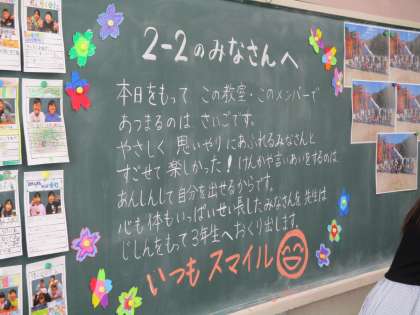 2-2のみなさんへ
本日をもって この教室・このメンバーで
あつまるのは さいごです。
やさしく 思いやりにあふれるみなさんと
すごせて楽しかった！けんかや言いあいをするのは
あんしんして自分を出せるからです。
心も体もいっぱいせい長したみなさんを 先生は
じしんをもって3年生へおくり出します。
いつも スマイル